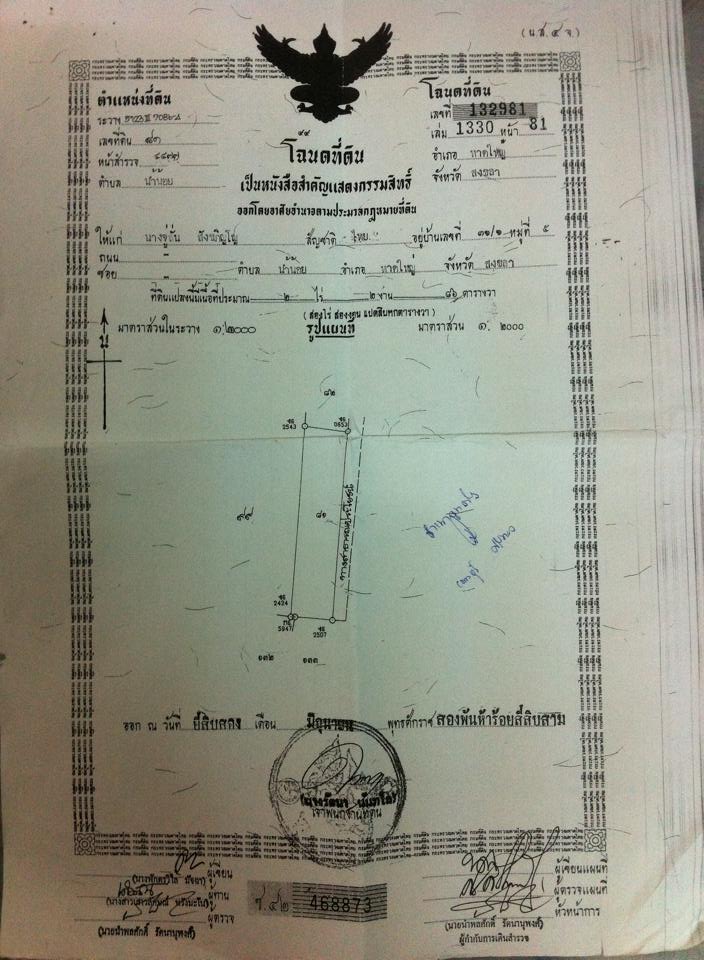 (น.ส.๔ จ.)
ตำแหน่งที่ดิน
ระวาง 5123 III 7086-1
เลขที่ดิน ๘๑
หน้าสำรวจ
ตำบล น้ำน้อย
โฉนดที่ดิน
เลขที่ 132981
เล่ม 1330 หน้า 81
อำเภอ หาดใหญ่
จังหวัด สงขลา
โฉนดที่ดิน
เป็นหนังสือสำคัญแสดงกรรมสิทธิ์
ออกโดยอาศัยอำนาจตามประมวลกฎหมายที่ดิน
ให้แก่ สัญชาติ ไทย อยู่บ้านเลขที่ ๓๑/๑ หมู่ที่ ๕
ถนน -
ซอย - ตำบล น้ำน้อย อำเภอ หาดใหญ่ จังหวัด สงขลา
ที่ดินแปลงนี้มีเนื้อที่ประมาณ ๒ ไร่ ๒ งาน ๘๖ ตารางวา
(สองไร่ สองงาน แปดสิบหกตารางวา)
มาตราส่วนในระวาง ๑:๒๐๐๐ รูปแผนที่ มาตราส่วน ๑:๒๐๐๐
น
๘๒
4G
2543
4G
0653
๗๙
๘๑
ทางสาธารณประโยชน์
4G
2424
5947
4G
2507
๑๓๒ ๑๓๓
ออก ณ วันที่ ยี่สิบสอง เดือน มิถุนายน พุทธศักราช สองพันห้าร้อยสี่สิบสาม
เจ้าพนักงานที่ดิน
ผู้เขียน
ผู้ทาน
ผู้ตรวจ
(นายนำพลศักดิ์ รัตนานุพงศ์)
ร.๔๒ 468873
ผู้เขียนแผนที่
ผู้ตรวจแผนที่
หัวหน้าการ
(นายนำพลศักดิ์ รัตนานุพงศ์)
ผู้กำกับการเดินสำรวจ